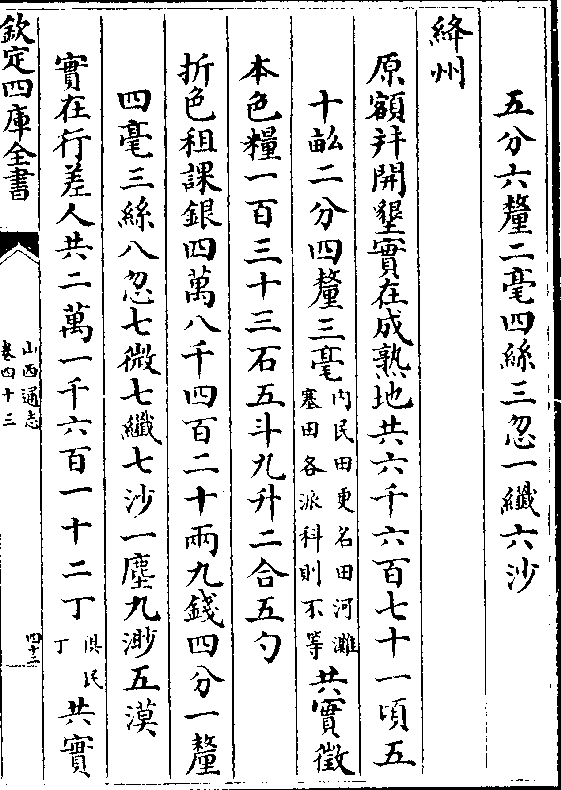 五分六釐二毫四絲三忽一纖六沙
絳州
原額并開墾實在成熟地共六千六百七十一頃五
十畝二分四釐三毫內民田更名田河灘塞田各派科則不等共實徵
本色糧一百三十三石五斗九升二合五勺
折色租課銀四萬八千四百二十兩九錢四分一釐
四毫三絲八忽七微七纖七沙一塵九渺五漠
實在行差人共二萬一千六百一十二丁俱民丁共實
欽定四庫全書
山西通志
卷四十三
四十三